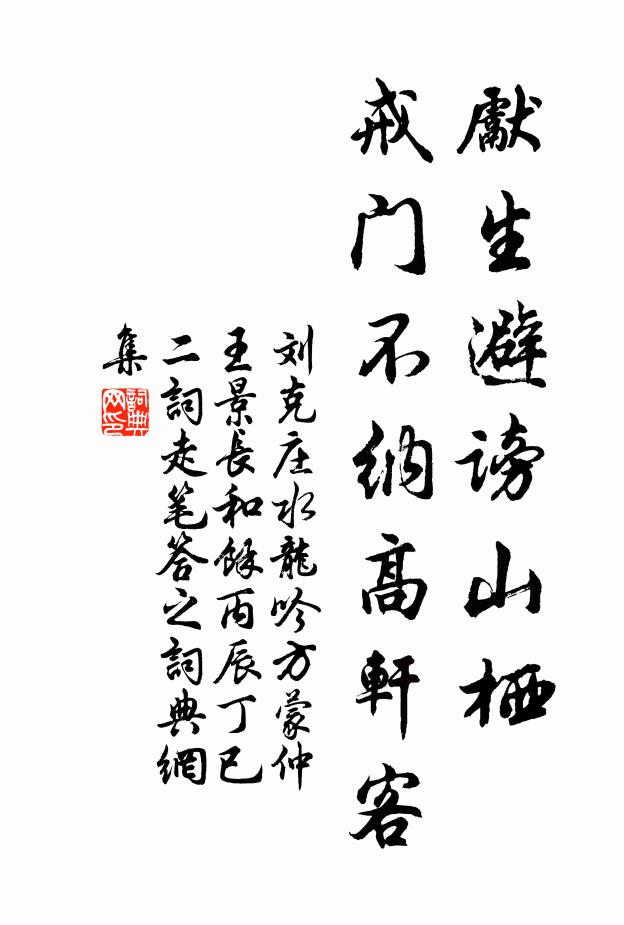 獻生避謗山栖
戒門不納高軒客
刘克庄水龍吟方蒙仲
王景長和餘丙辰丁巳
二詞走笔答之詞典網
集
詞典
网印